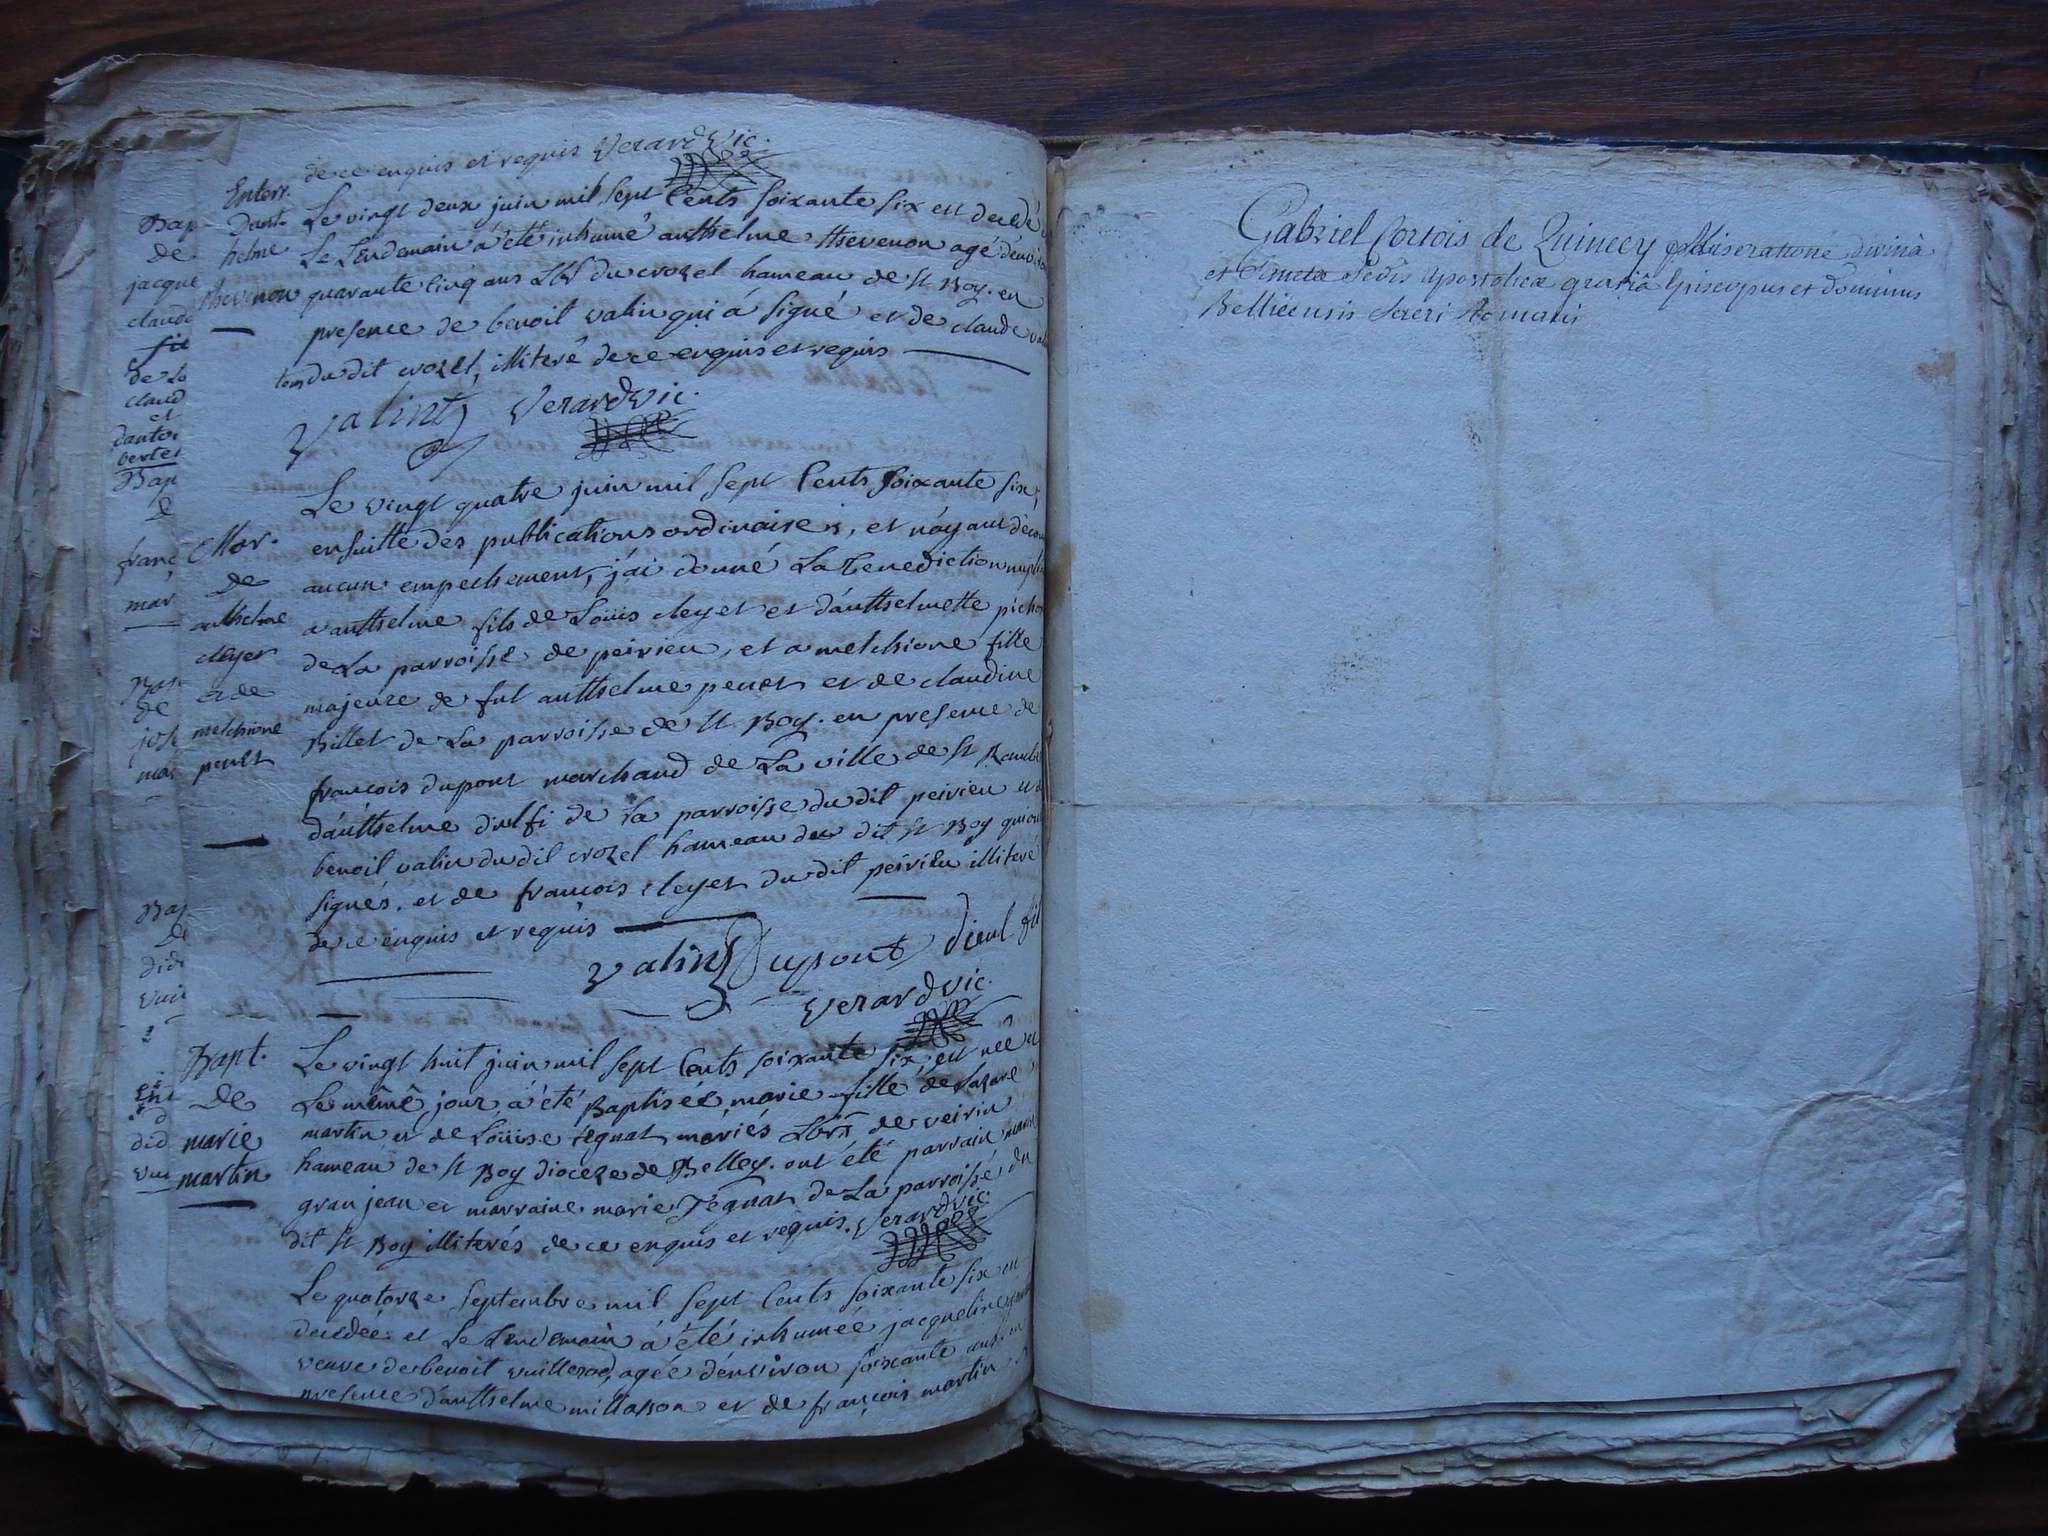 de ce enquis et requis Verard vic.
Enterr.
Danthelme
thevenon
Le vingt deux juin mil sept Cents soixante six est decedé
Le Lendemain a été inhumé antthelme thevenon agé d'environ
quarante cinq ans Lbr du crozet hameau de st Boy. en
presence de benoit valin qui á signé et de claude
du dit crozet, illiteré de ce enquis et requis
valint Verard vic.
Mar.
de
antthelme
cleyet
et de
melchione
penet
Le vingt quatre juin mil sept Cents soixante six,
ensuitte des publications ordinaires, et n'áyant
aucun empechement, j'ai donné La Benediction
a antthelme fils de Loüis cleyet et d'antthelmette
de La parroisse de peirieu, et a melchione fille
majeure de fut antthelme penet et de claudine
Billet de La parroisse de st Boy. en presence de
françois dupont marchand de La ville de st
d'antthelme diulfi de La parroisse du dit peirieu
benoit valin du dit crozet hameau du dit st Boy qui
signés. et de françois cleyet du dit peirieu illiteré
de ce enquis et requis
valint Dupont
Verard vic.
Bapt.
De
marie
martin
Le vingt huit juin mil sept Cents soixante six, est née et
Le même jour a été Baptisée marie fille de Lazare
martin et de Loüise tegnat mariés Lbrs de veirin
hameau de st Boy dioceze de Belley. ont été parrain
gran jean et marraine marie Tegnat de La parroisse du
dit st Boy illiterés de ce enquis et requis. Verard vic.
Le quatorze septembre mil sept Cents soixante six est
decedée et Le Lendemain a été inhumée jacqueline
veuve de benoit vuillerod, agée d'environ soixante ans en
presence d'antthelme millasson et de françois martin
Gabriel Cortois de Quincey Miseratione divinâ
et Sanctæ Sedis Apostolicæ gratiâ Episcopus et Dominus
Bellicensis Sacri Romani